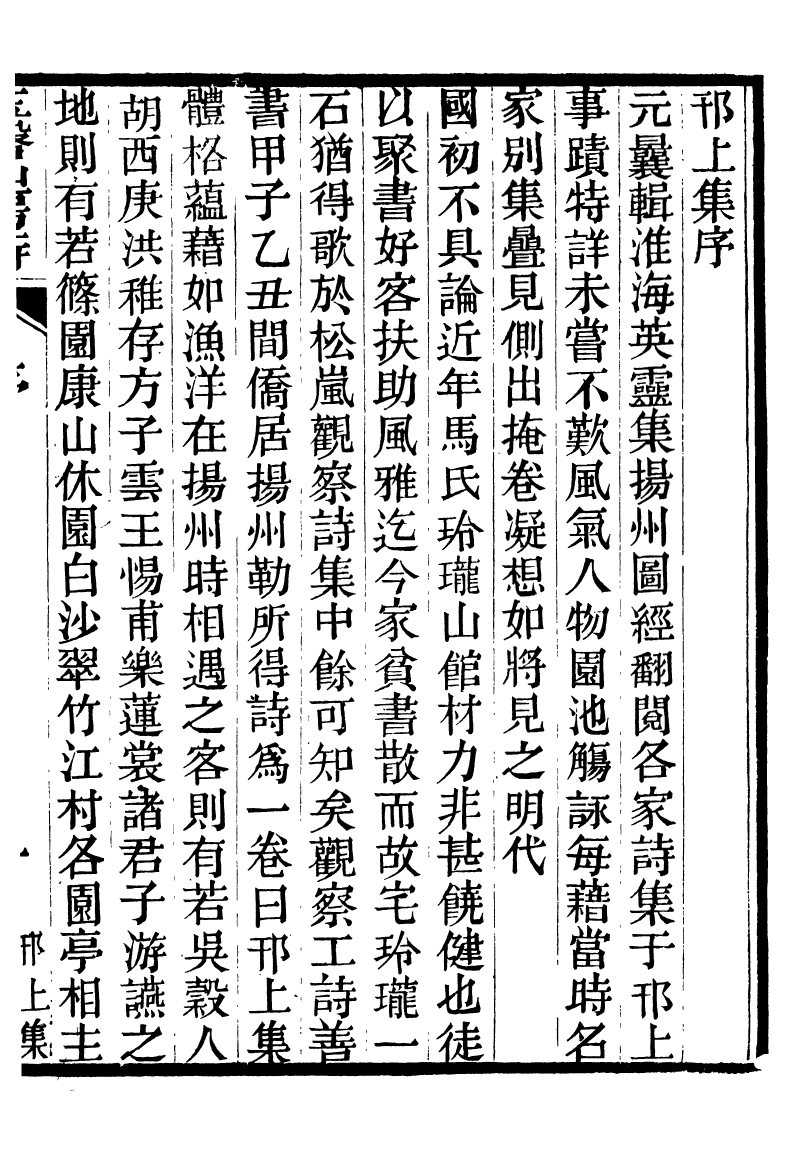 邗上集序
元曩輯淮海英靈集揚州圖經翻閱各家詩集于邗上
事蹟特詳未嘗不歎風氣人物園池觴詠每藉當時名
家別集疊見側出掩卷凝想如將見之明代
國初不具論近年馬氏玲瓏山館材力非甚饒健也徒
以聚書好客扶助風雅迄今家貧書散而故宅玲瓏一
石猶得歌於松嵐觀察詩集中餘可知矣觀察工詩善
書甲子乙丑間僑居揚州勒所得詩為一卷曰邗上集
體格蘊藉如漁洋在揚州時相遇之客則有若吳穀人
胡西庚洪稚存方子雲王惕甫樂蓮裳諸君子游讌之
地則有若篠園康山休園白沙翠竹江村各園亭相主
邗上集